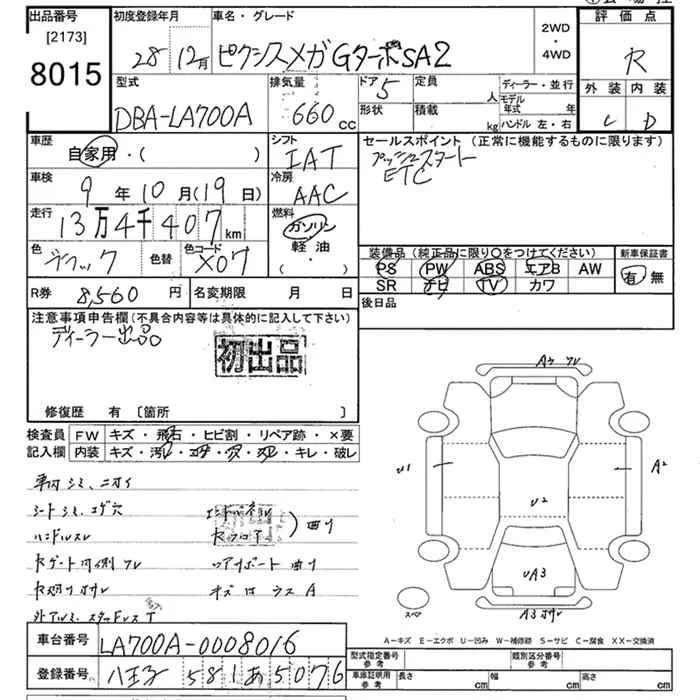 出品番号 初度登録年月 車名・グレード 評価点
[2173]
8015
28 12月 ピクシスメガ Gターボ SA2
2WD
・
4WD
R
外装 内装
D
型式 排気量 ドア 5 定員 人
ディーラー・並行
DBA-LA700A 660 cc
形状 積載 kg
モデル年式 年
ハンドル 左・右
車歴 自家用・( )
シフト IAT
セールスポイント (正常に機能するものに限ります)
プッシュスタート
ETC
車検 9年 10月(19日)
冷房 AAC
走行 13万4千407km
燃料 ガソリン
軽油
・( )
色 ブラック 色替 色コード X07
装備品(純正品に限り○をつけてください) 新車保証書
PS PW ABS エアB AW
SR ナビ TV カワ
有 無
R券 8,560円 名変期限 月 日
後日品
注意事項申告欄(不具合内容等は具体的に記入して下さい)
ディーラー出品
初出品
修復歴 有 [箇所 ]
検査員 FW キズ・飛石・ヒビ割・リペア跡・×要
記入欄 内装 キズ・汚レ・コゲ・穴・スレ・キレ・破レ
車内シミ、ニオイ
シートシミ、コゲ穴
ハンドルスレ
曲り
外アルミ、スタッドレスT
A3
U1
A2
U2
UA3
A3
スペア
A-キズ E-エクボ U-凹み W-補修跡 S-サビ C-腐食 XX-交換済
車台番号 LA700A-0008016
登録番号 八王子 581 あ 5076
型式指定番号 参考
類別区分番号 参考
車庫証明用 参考
長さ cm 幅 cm 高さ cm